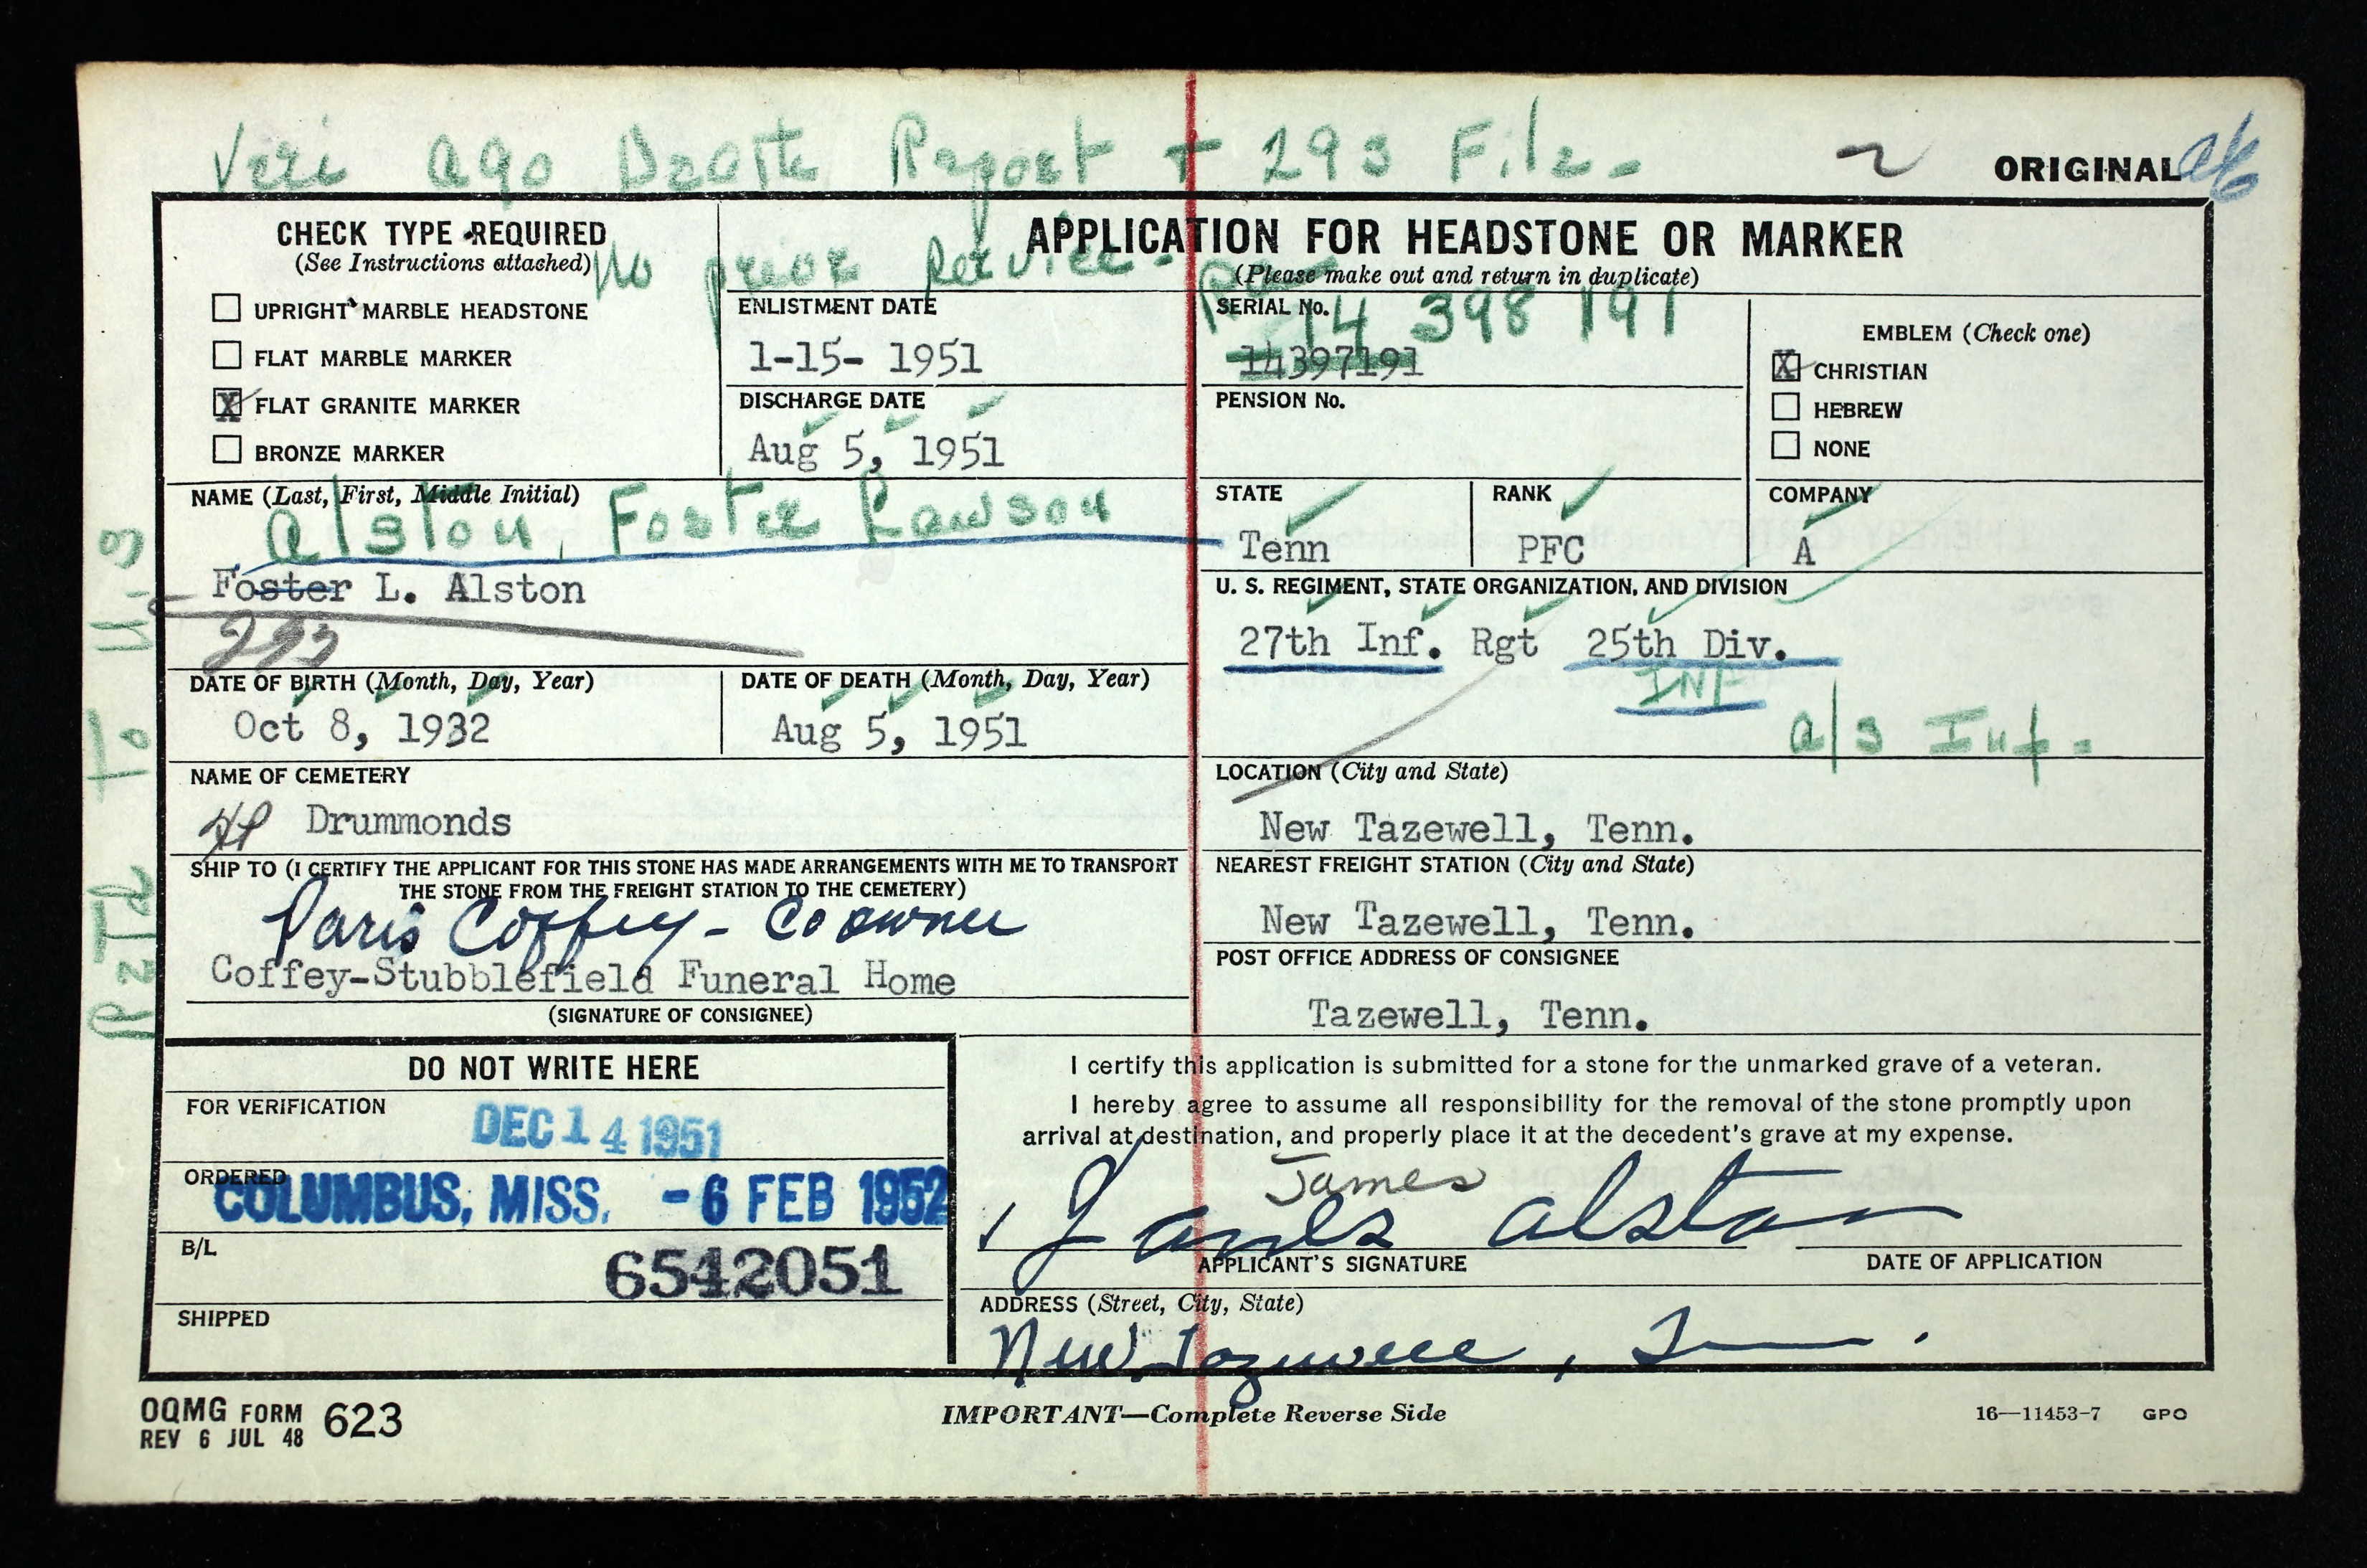 Veri AGO Death Report + 293 File -
ORIGINAL
CHECK TYPE REQUIRED
(See Instructions attached)
No prior Service -
APPLICATION FOR HEADSTONE OR MARKER
(Please make out and return in duplicate)
☐ UPRIGHT MARBLE HEADSTONE
☐ FLAT MARBLE MARKER
☒ FLAT GRANITE MARKER
☐ BRONZE MARKER
ENLISTMENT DATE
1-15- 1951
DISCHARGE DATE
Aug 5, 1951
SERIAL No.
14 398 191
14397191
PENSION No.
EMBLEM (Check one)
☒ CHRISTIAN
☐ HEBREW
☐ NONE
NAME (Last, First, Middle Initial)
Alston, Foster Lawson
Foster L. Alston
293
STATE
Tenn
RANK
PFC
COMPANY
A
U. S. REGIMENT, STATE ORGANIZATION, AND DIVISION
27th Inf. Rgt 25th Div.
INF
a/s Inf.
DATE OF BIRTH (Month, Day, Year)
Oct 8, 1932
DATE OF DEATH (Month, Day, Year)
Aug 5, 1951
NAME OF CEMETERY
Drummonds
LOCATION (City and State)
New Tazewell, Tenn.
SHIP TO (I CERTIFY THE APPLICANT FOR THIS STONE HAS MADE ARRANGEMENTS WITH ME TO TRANSPORT
THE STONE FROM THE FREIGHT STATION TO THE CEMETERY)
Paris Coffey - Co owner
Coffey-Stubblefield Funeral Home
(SIGNATURE OF CONSIGNEE)
NEAREST FREIGHT STATION (City and State)
New Tazewell, Tenn.
POST OFFICE ADDRESS OF CONSIGNEE
Tazewell, Tenn.
Retd To U.S
DO NOT WRITE HERE
FOR VERIFICATION
DEC 14 1951
ORDERED
COLUMBUS, MISS. -6 FEB 1952
B/L
6542051
SHIPPED
I certify this application is submitted for a stone for the unmarked grave of a veteran.
I hereby agree to assume all responsibility for the removal of the stone promptly upon
arrival at destination, and properly place it at the decedent's grave at my expense.
James
James Alston
APPLICANT'S SIGNATURE
DATE OF APPLICATION
ADDRESS (Street, City, State)
New Tazewell, Tenn.
OQMG FORM 623
REV 6 JUL 48
IMPORTANT—Complete Reverse Side
16—11453-7 GPO